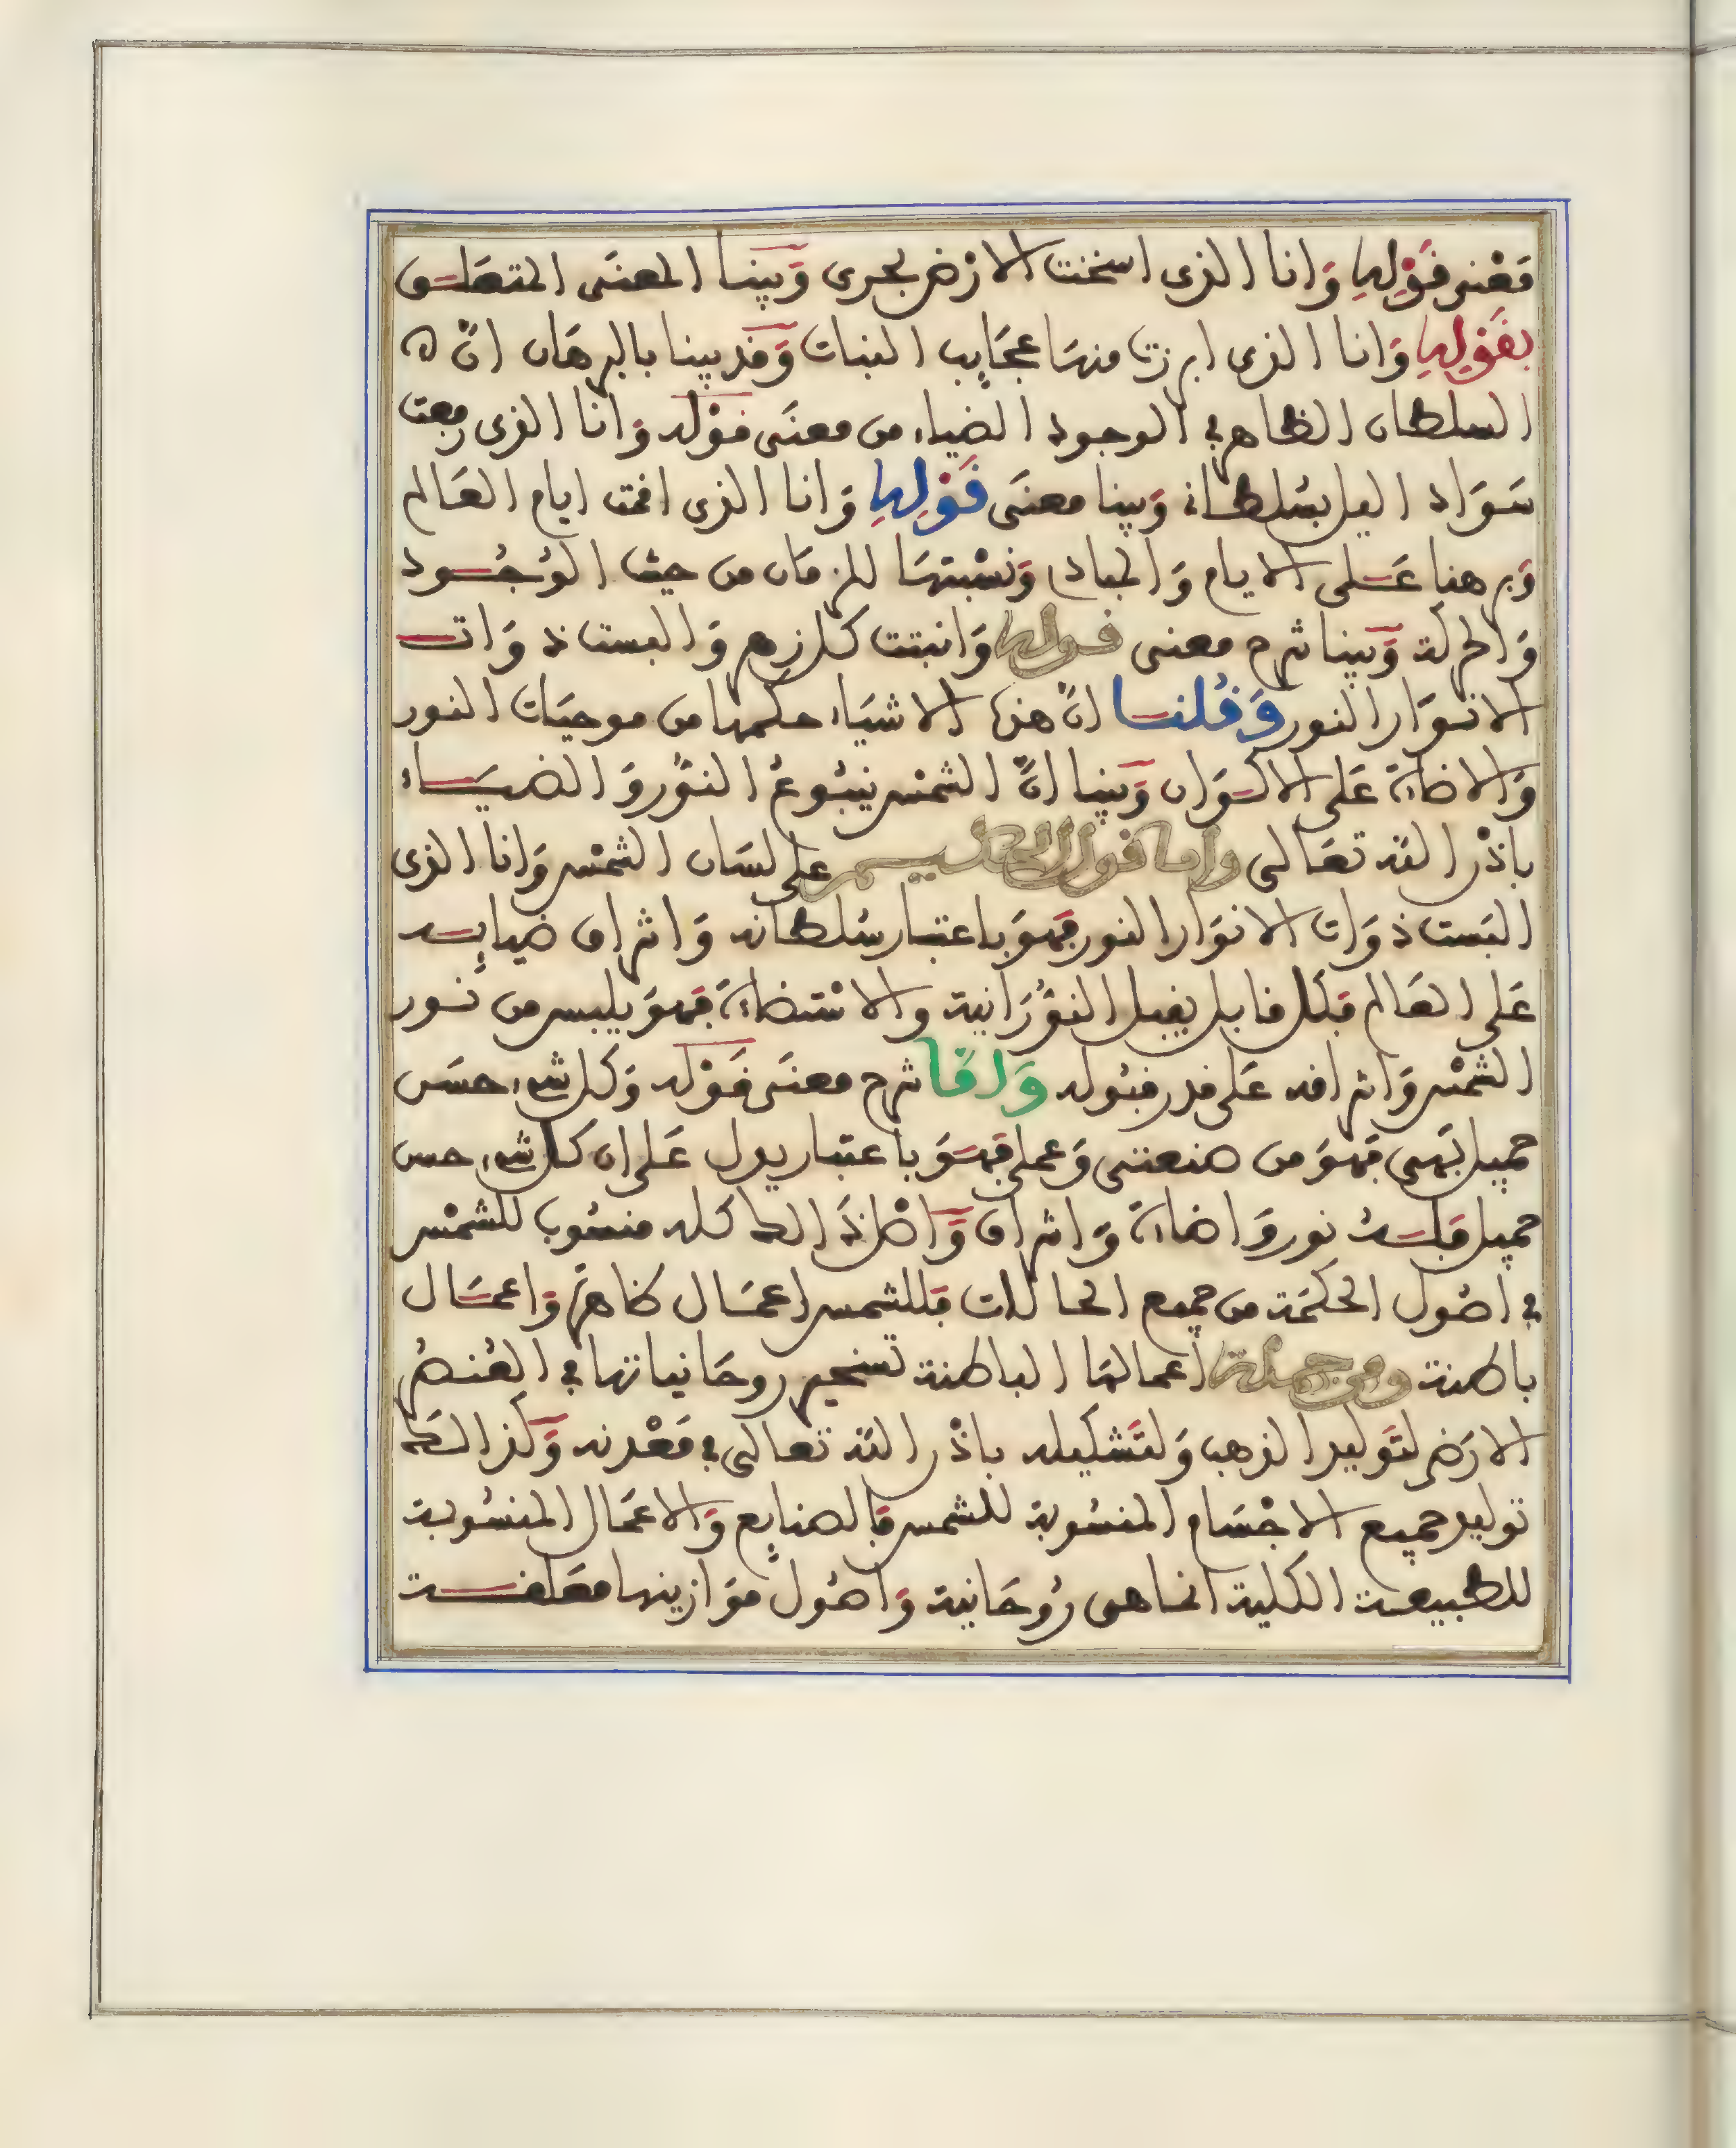 مَعْنى قَوْلِهَا وَانا الذى اسخنت الارْض بحرى وَبينا المعنَى المتعَلـق
بقَوْلِهَا وَانا الذى ابرزت منهَا عجَايب النبات وَقد بينا بالبرهَان انّ
السلطان الظاهر في الوجود الضياء من معنَى قوْله وَانا الذى رفعت
سَوَاد اليل بسُلطانى وَبينا معنَى قَوْلِهَا وَانا الذى اقمت ايام العَالم
وَبرهنا عَـلى الايام وَالمبادى وَنسْبتهَا للزمَان من حيث الوُجُـود
وَالحركة وَبينا شرح معنى قولها وَانبتت كل زهر وَالبست ذوَاتـ
الانوَار النور وَقُلنـا انّ هذه الاشيَاء حكمها من موحيَات النور
وَالاضاءة عَلى الاكـوَان وَبينا انّ الشمْس ينبُوعُ النوُر وَالضيَـاء
باذْن الله تعَالى واما قول الحكيـم على لسَان الشمْس وَانا الذى
البَست ذوَات الانوَار النور فهوَ باعتبار سُلطانه وَاشراق ضيايـه
عَلى العَالم فلكل قابل يقبل النوُرَانية والاسْتضاءة فهوَ يلبس من نـور
الشمْس وَاشراقه عَلى قدر قبُوله وَامَّا شرح معنَى قَوْله وَكل شىء حسَن
جميل بَهى فهوَ من صنعتى وَعملى فهـوَ باعتبار يدل عَلى ان كل شىء حسن
جميل فلـهُ نور وَاضاءة وَاشراق وَاصْل ذَالك كله منسُوب للشمْس
في اصُول الحكمَة من جميع الحالات فللشمس اعمَال ظاهرة وَاعمـَال
باطنة ومن جملة اعمالهَا الباطنة تسخير روحَانياتها في العُنصُر
الارَضى لتَوليد الذهب وَلتَشكيله باذْن الله تعالى في مَعْدنه وَكذالك
توليد جميع الاجْسَام المنسُوبة للشمس فالصنايع وَالاعمَال المنسُوبة
للطبيعـة الكلية انما هى رُوحَانية وَاصُول موَازينها معَلقـة